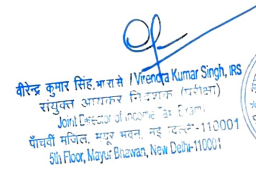 वीरेन्द्र कुमार सिंह, भा रा से / Virendra Kumar Singh, IRS
संयुक्त आयकर निदेशक
Joint Director of Income Tax
पाँचवीं मंजिल, मयूर भवन, नई दिल्ली-110001
5th Floor, Mayur Bhawan, New Delhi-110001